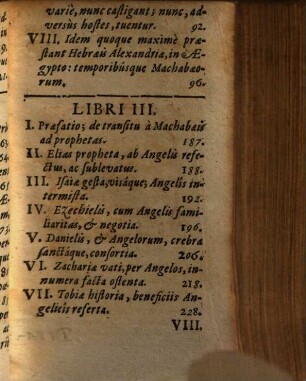 variè, nunc castigant; nunc, ad-
versùs hostes, tuentur. 92.
VIII. Idem quoque maximè præ-
stant Hebræis Alexandriæ, in Æ-
gypto: temporibúsque Machabæo-
rum. 96.
LIBRI III.
I. Præfatio; de transitu à Machabæis
ad prophetas. 187.
II. Elias propheta, ab Angelis refe-
ctus, ac sublevatus. 188.
III. Isaiæ gesta, visáque; Angelis in-
termista. 192.
IV. Ezechielis, cum Angelis fami-
liaritas, & negotia. 196.
V. Danielis, & Angelorum, crebra
sanctáque, consortia. 206.
VI. Zachariæ vati, per Angelos, in-
numera facta ostenta. 218.
VII. Tobiæ historia, beneficiis An-
gelicis referta. 228.
VIII.